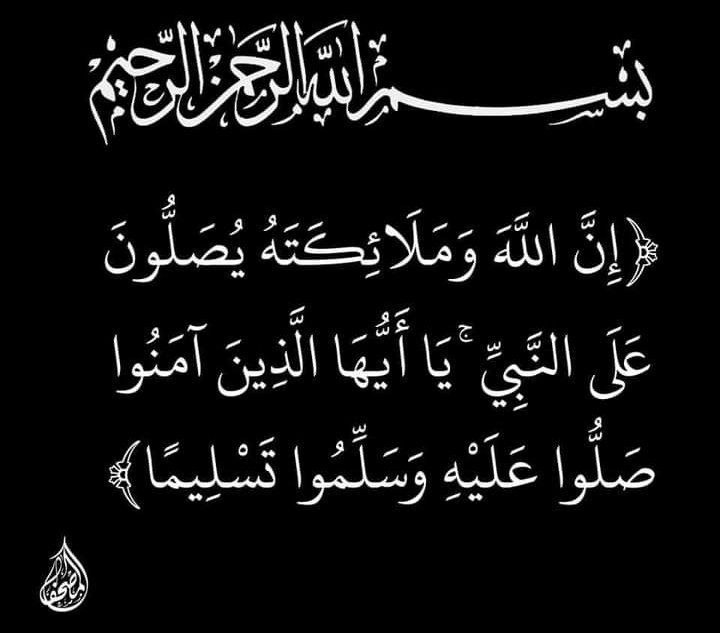 بسم الله الرحمن الرحيم
﴿إِنَّ اللَّهَ وَمَلَائِكَتَهُ يُصَلُّونَ
عَلَى النَّبِيِّ ۚ يَا أَيُّهَا الَّذِينَ آمَنُوا
صَلُّوا عَلَيْهِ وَسَلِّمُوا تَسْلِيمًا﴾